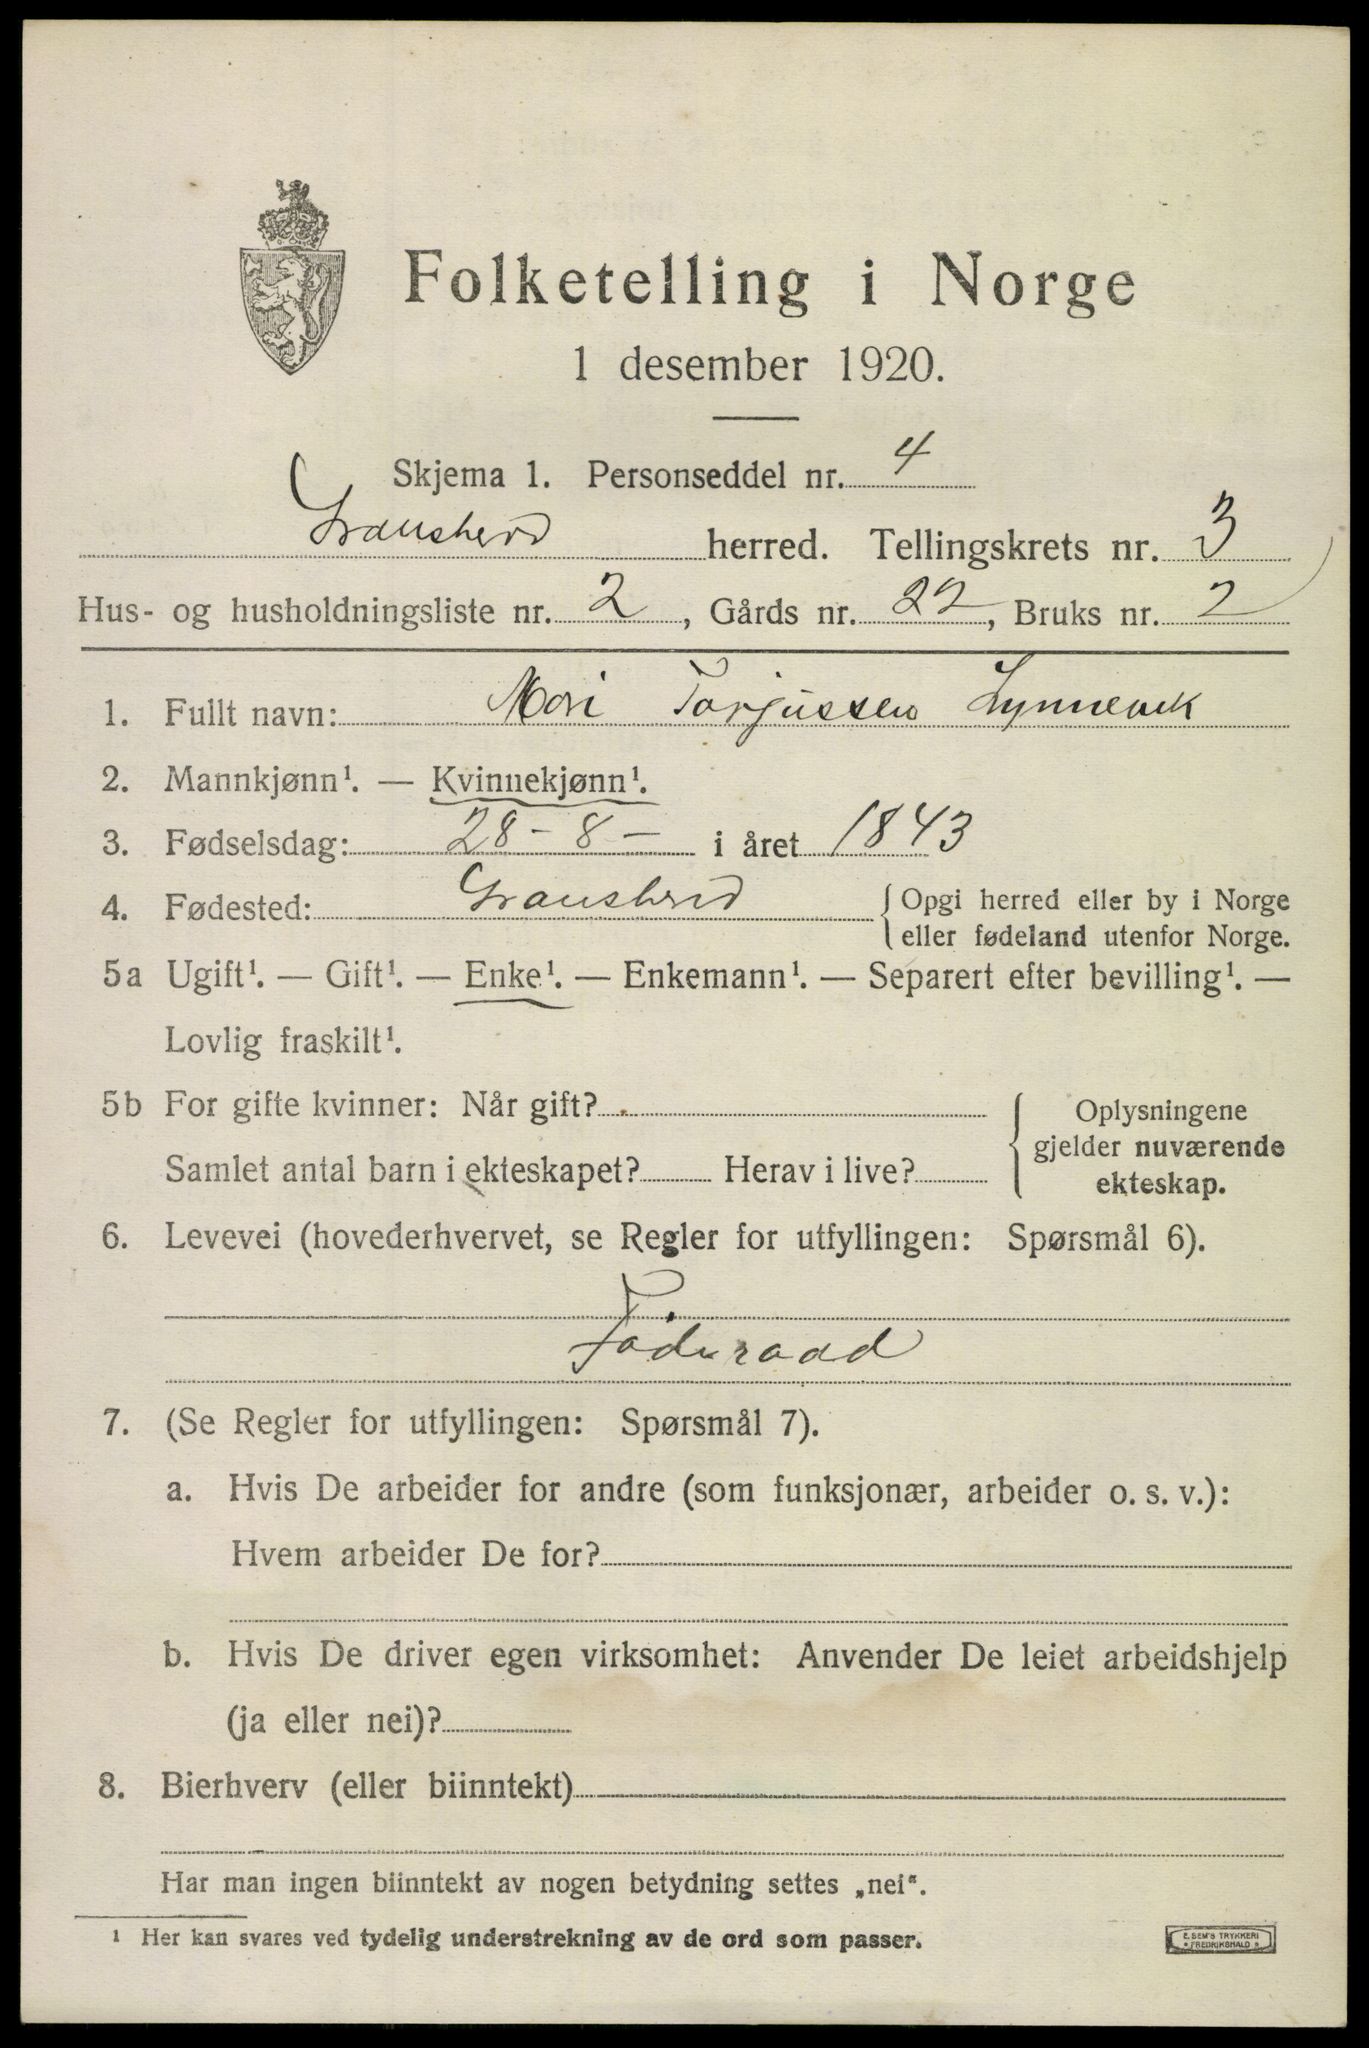 Folketelling i Norge
1 desember 1920.
Skjema 1. Personseddel nr. 4
Gransherd herred. Tellingskrets nr. 3
Hus- og husholdningsliste nr. 2, Gårds nr. 22, Bruks nr. 2
1. Fullt navn: Mari Torjussen Lynnevik
2. Mannkjønn¹. — Kvinnekjønn¹.
3. Fødselsdag: 28 - 8 - i året 1843
4. Fødested: Gransherd {Opgi herred eller by i Norge
eller fødeland utenfor Norge.
5a Ugift¹. — Gift¹. — Enke¹. — Enkemann¹. — Separert efter bevilling¹. —
Lovlig fraskilt¹.
5b For gifte kvinner: Når gift?
Samlet antal barn i ekteskapet? Herav i live?
Oplysningene
gjelder nuværende
ekteskap.
6. Levevei (hovederhvervet, se Regler for utfyllingen: Spørsmål 6).
Føderaad
7. (Se Regler for utfyllingen: Spørsmål 7).
a. Hvis De arbeider for andre (som funksjonær, arbeider o. s. v.):
Hvem arbeider De for?
b. Hvis De driver egen virksomhet: Anvender De leiet arbeidshjelp
(ja eller nei)?
8. Bierhverv (eller biinntekt)
Har man ingen biinntekt av nogen betydning settes „nei".
¹ Her kan svares ved tydelig understrekning av de ord som passer.
E. SEM'S TRYKKERI
FREDRIKSHALD